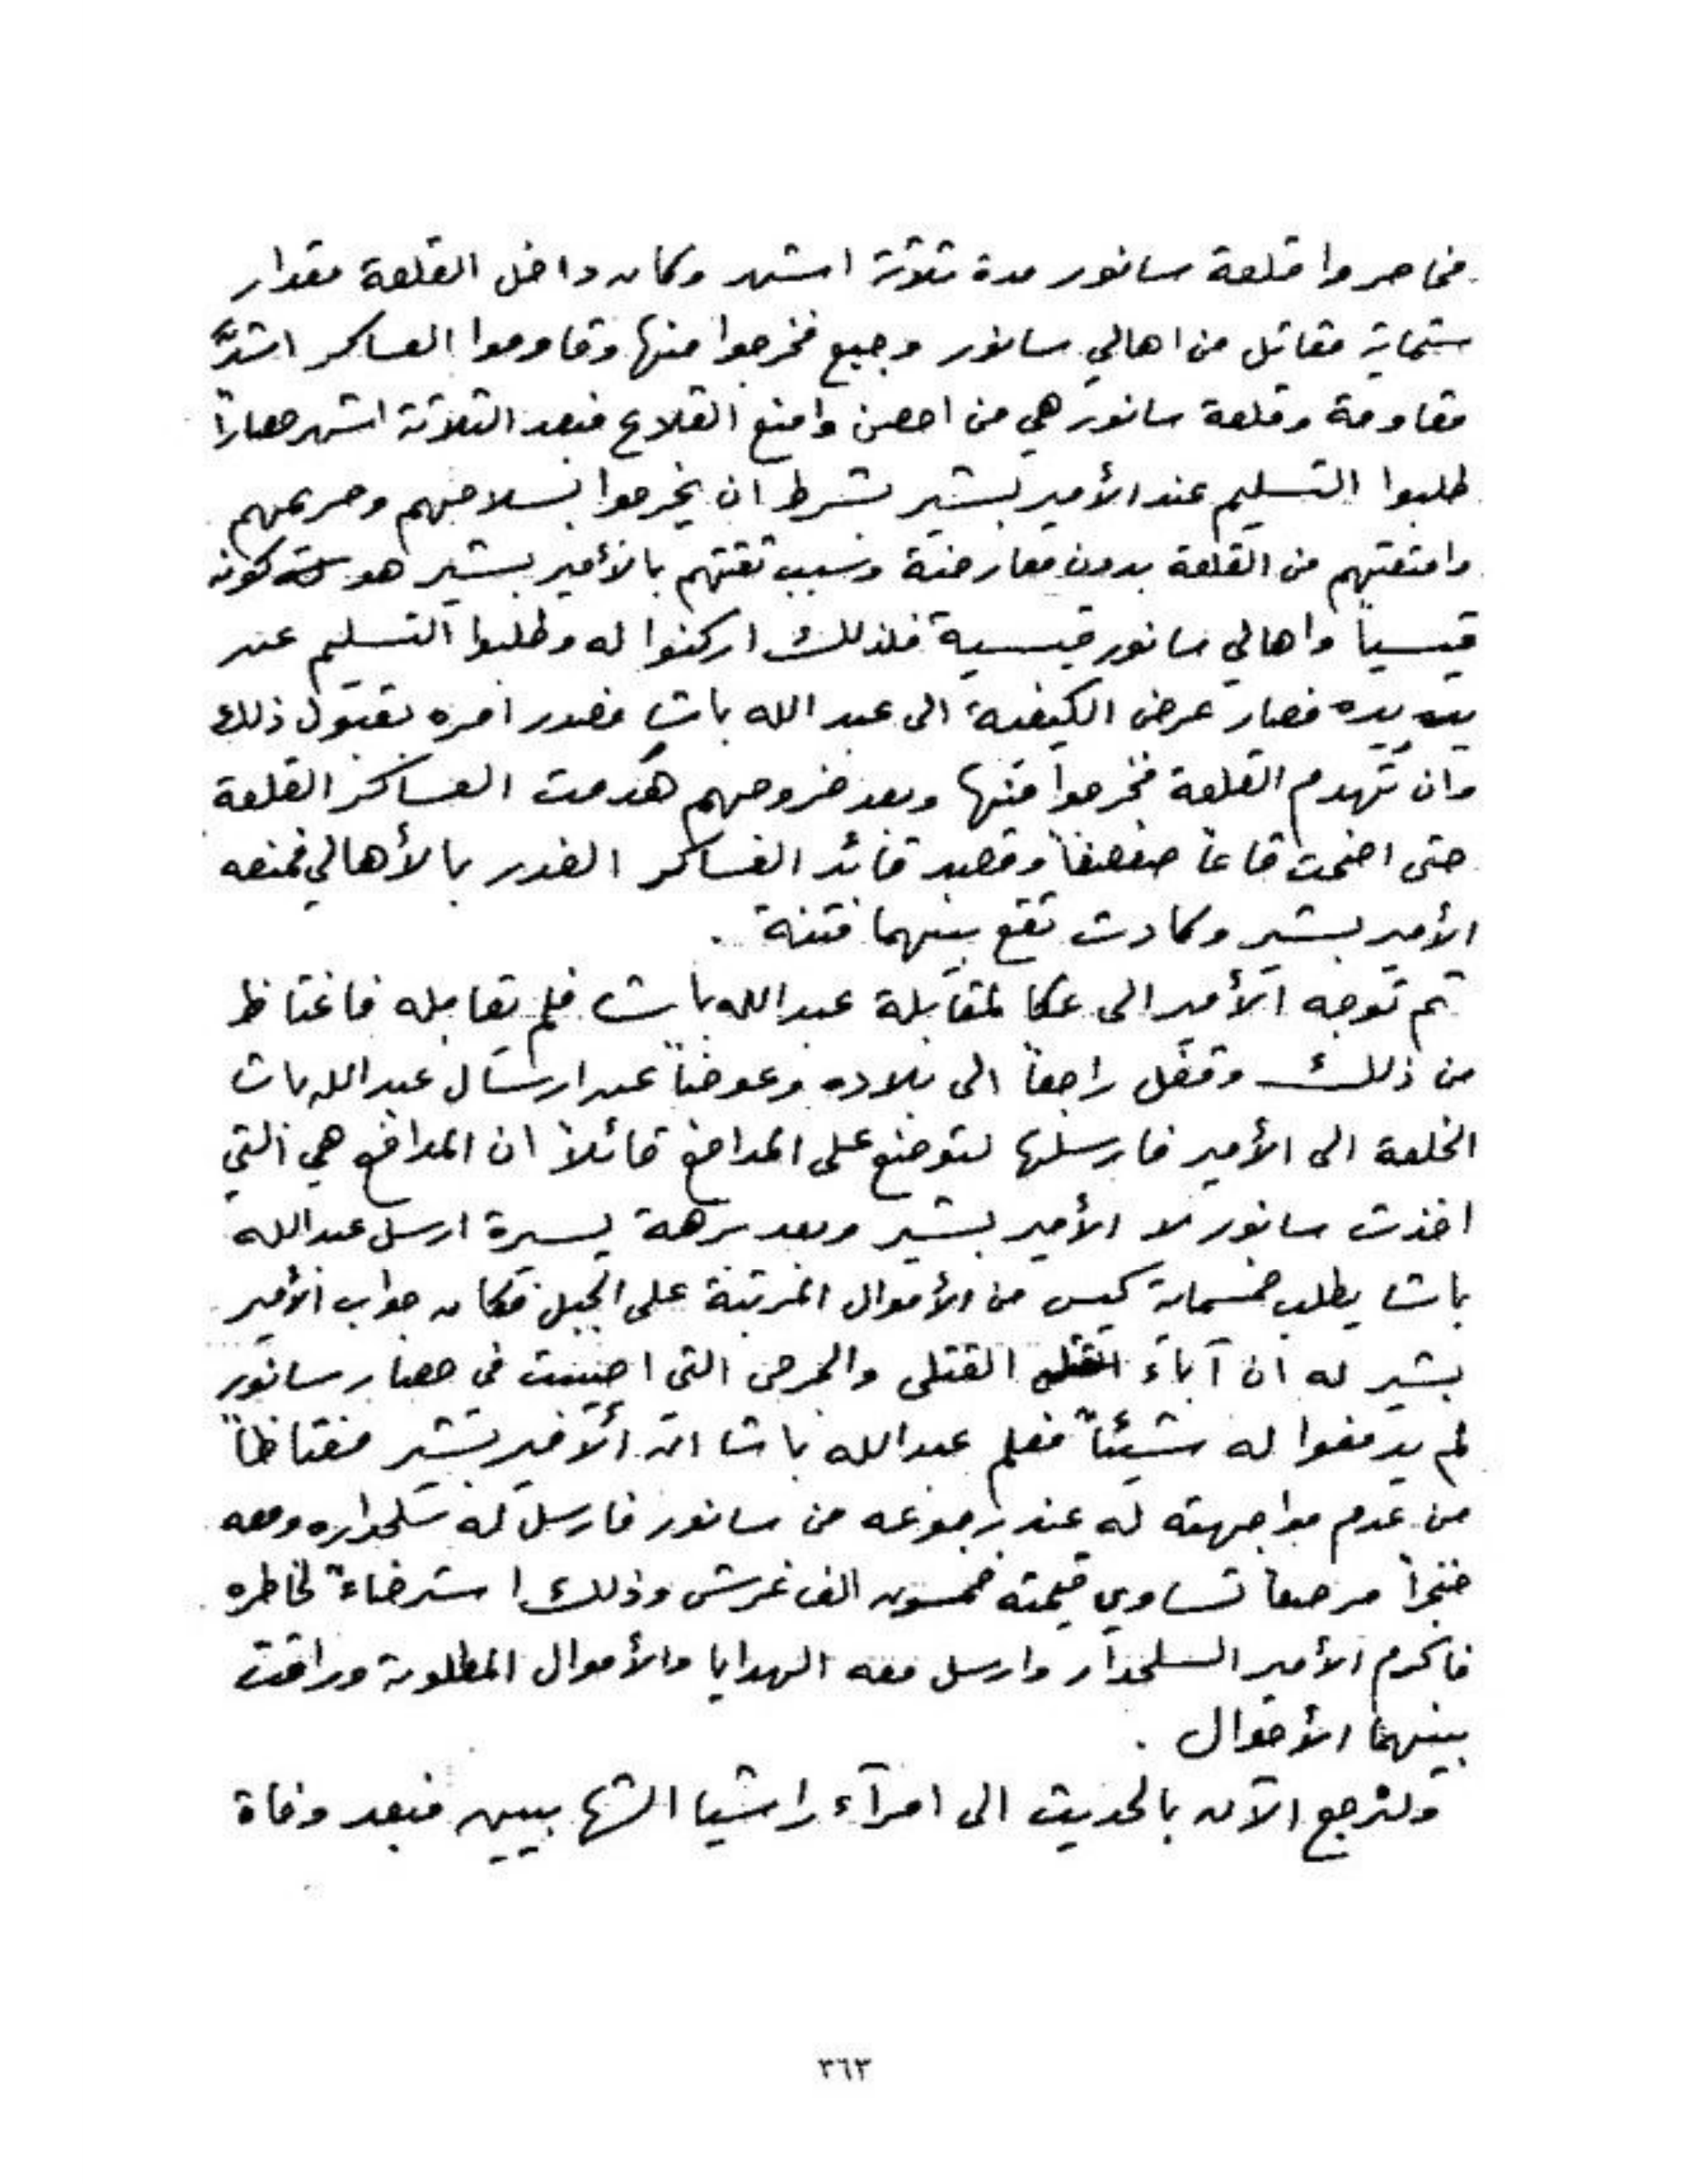 فحاصروا قلعة سانور مدة ثلاثة اشهر وكان داخل القلعة مقدار
ستماية مقاتل من اهالي سانور وجبع فخرجوا منها وقاوموا العساكر اشدَّ
مقاومة وقلعة سانور هي من احصن وامنع القلاع فبعد الثلاثة اشهر حصاراً
طلبوا التسليم عند الأمير بشير بشرط ان يخرجوا بسلاحهم وحريمهم
وامتعتهم من القلعة بدون معارضة وسبب ثقتهم بالأمير بشير هو كونه
قيسياً واهالي سانور قيسية فلذلك اركنوا له وطلبوا التسليم عن
يد يده فصار عرض الكيفية الى عبد الله باشا فصدر امره بقبول ذلك
وان تهدم القلعة فخرجوا منها وبعد خروجهم هدمت العساكر القلعة
حتى اضحت قاعاً صفصفاً وقصد قائد العساكر الغدر بالأهالي فمنعه
الأمير بشير وكادت تقع بينهما فتنة .
ثم توجه الأمير الى عكا لمقابلة عبد الله باشا فلم يقابله فاغتاظ
من ذلك وقفل راجعاً الى بلاده وعوضاً عن ارسال عبد الله باشا
الخلعة الى الأمير فارسلها لتوضع على المدافع قائلاً ان المدافع هي التي
اخذت سانور لا الأمير بشير وبعد برهة يسيرة ارسل عبد الله
باشا يطلب خمسماية كيس من الأموال المرتبة على الجبل فكان جواب الأمير
بشير له ان آباء القتلى والجرحى التي اصيبت في حصار سانور
لم يدفعوا له شيئاً فعلم عبد الله باشا ان الأمير بشير مغتاظاً
من عدم مواجهته له عند رجوعه من سانور فارسل له سلحداره ومعه
خنجراً مرصعاً تساوي قيمته خمسون الف غرش وذلك استرضاءً لخاطره
فاكرم الأمير السلحدار وارسل معه الهدايا والأموال المطلوبة وراقت
بينهما الأحوال .
ولنرجع الآن بالحديث الى امرآء راشيا الشهابيين فبعد وفاة
٣٦٣